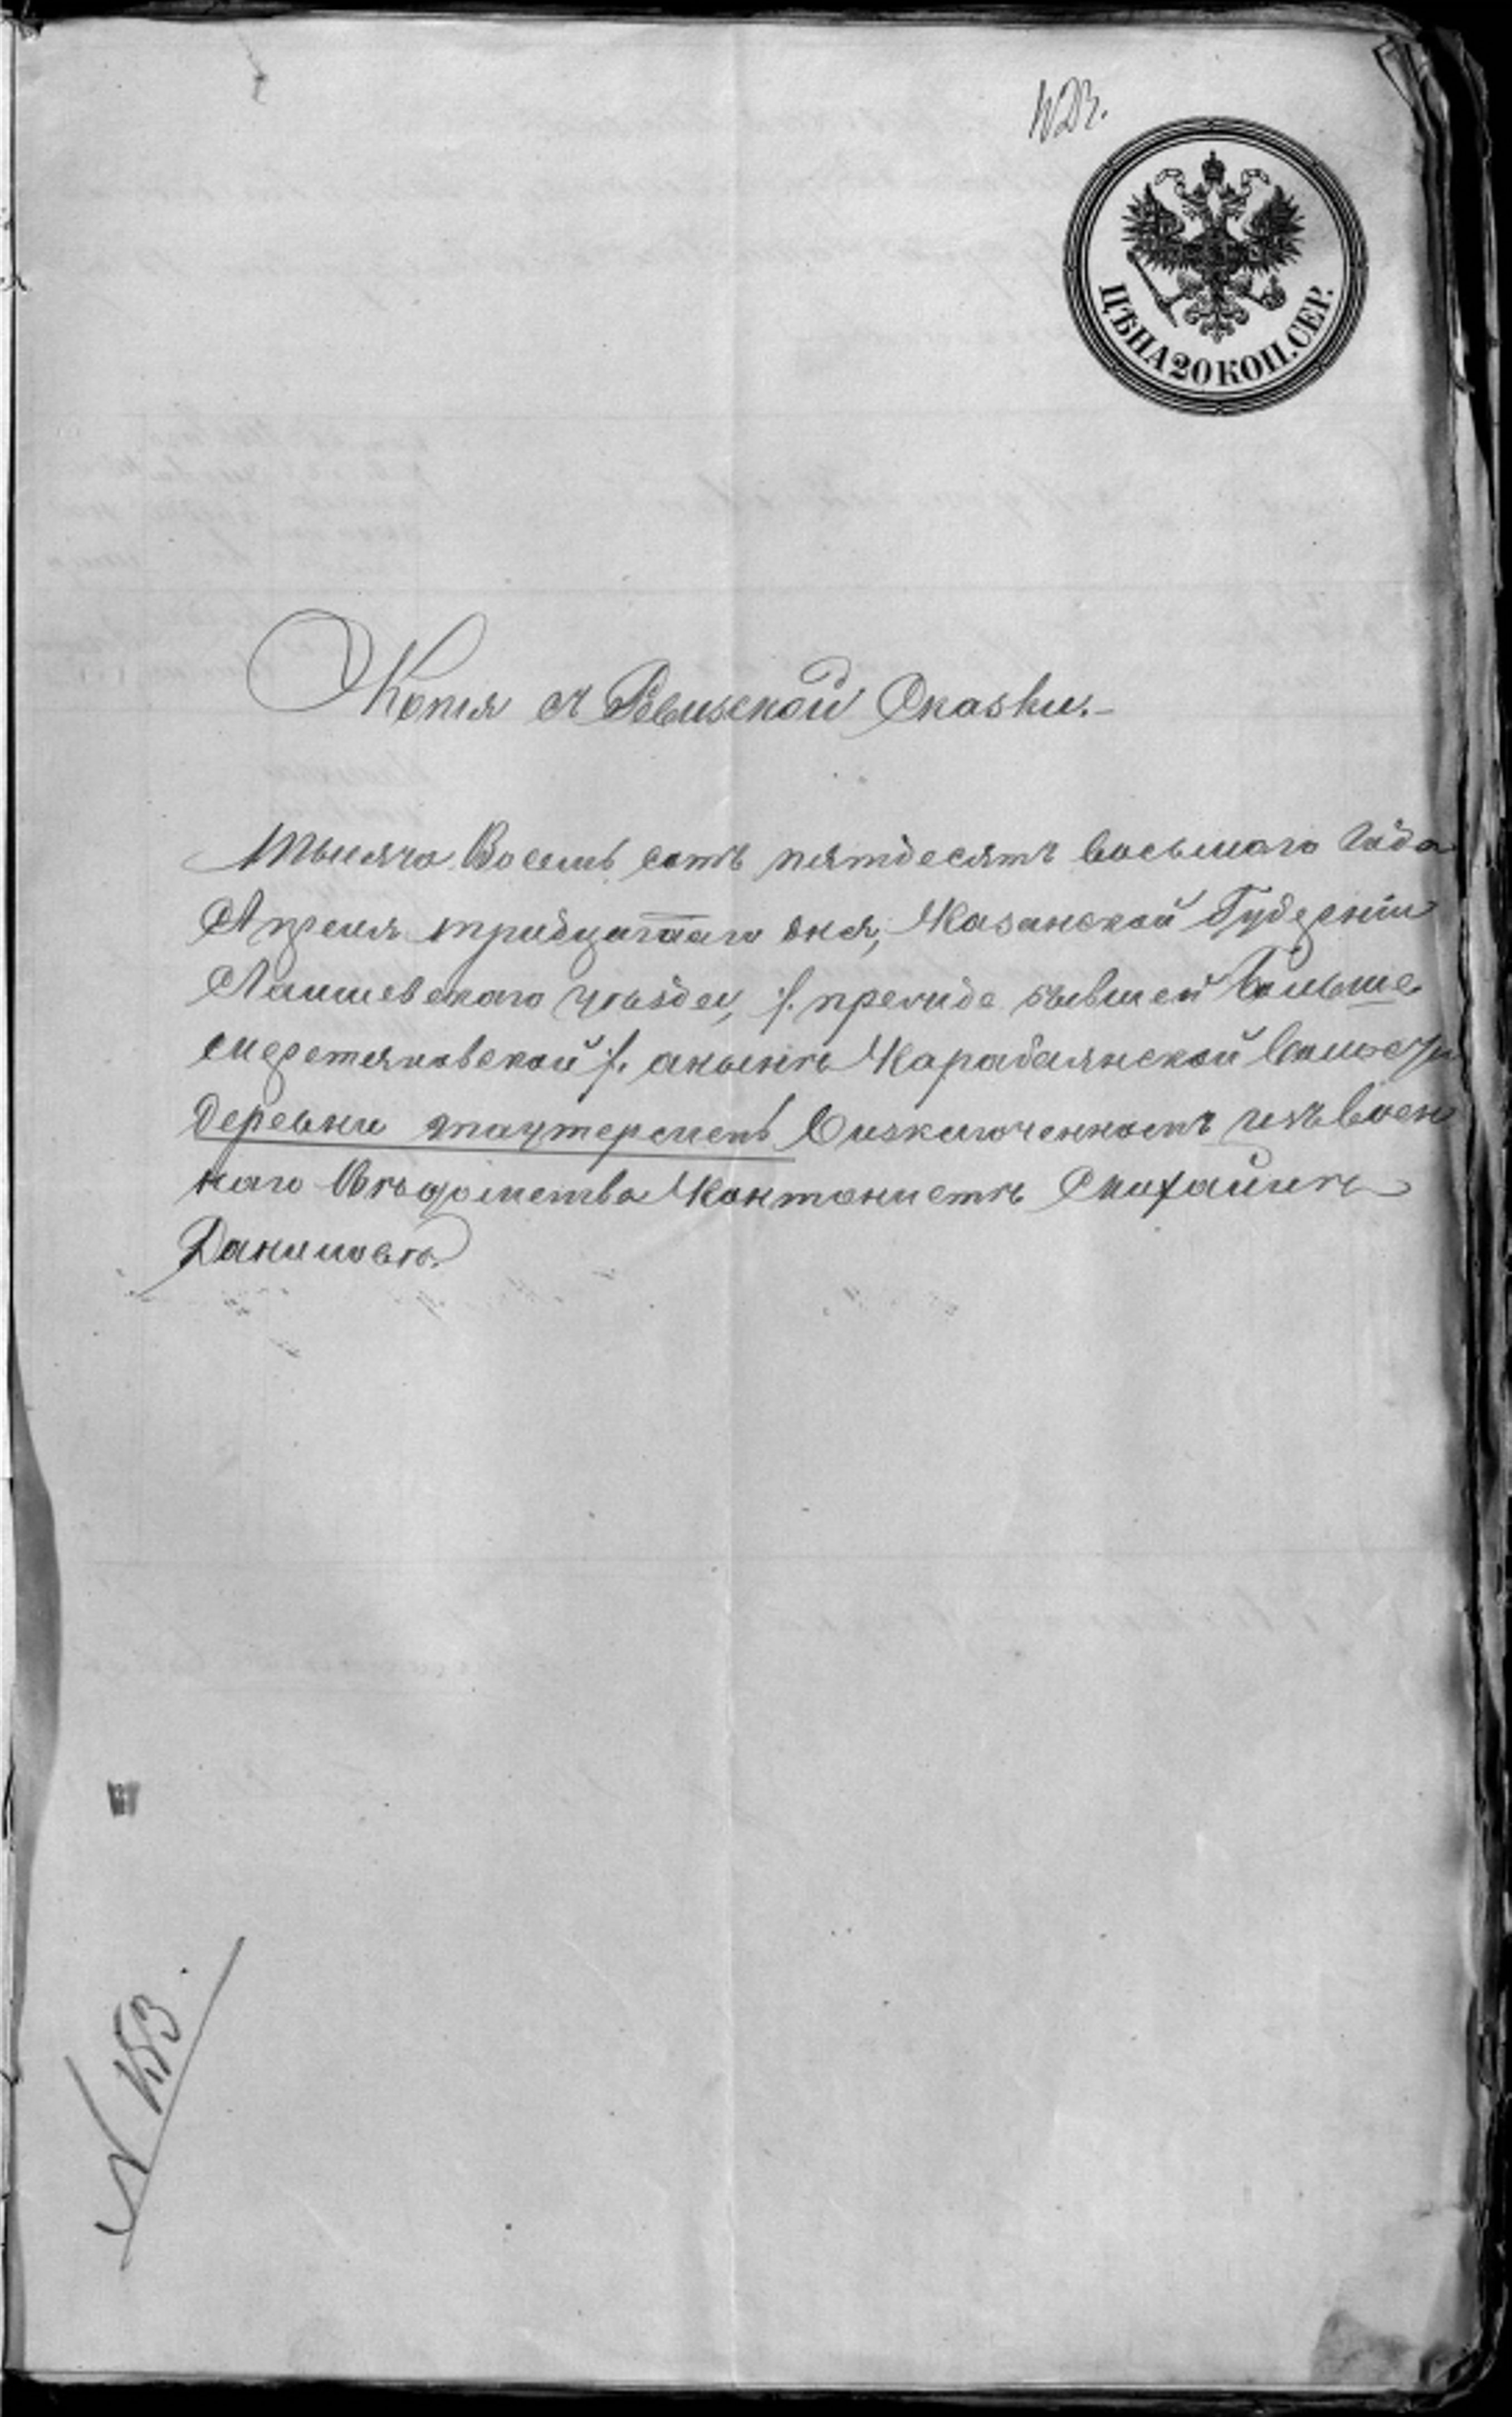 ЦѢНА 20 КОП. СЕР.
Копия съ Ревизской Сказки.-
Тысяча Восемь сотъ пятдесятъ восьмаго года
Апреля тридцатаго дня, Казанской Губерніи
Лаишевскаго уѣзда, /. прежде бывшей Больше
метескинской ./. а нынѣ Карабаянской волости
деревни таутермень Оизключенномъ изъ воен
наго вѣдомства Кантонистѣ Михайлѣ
Даниловѣ.